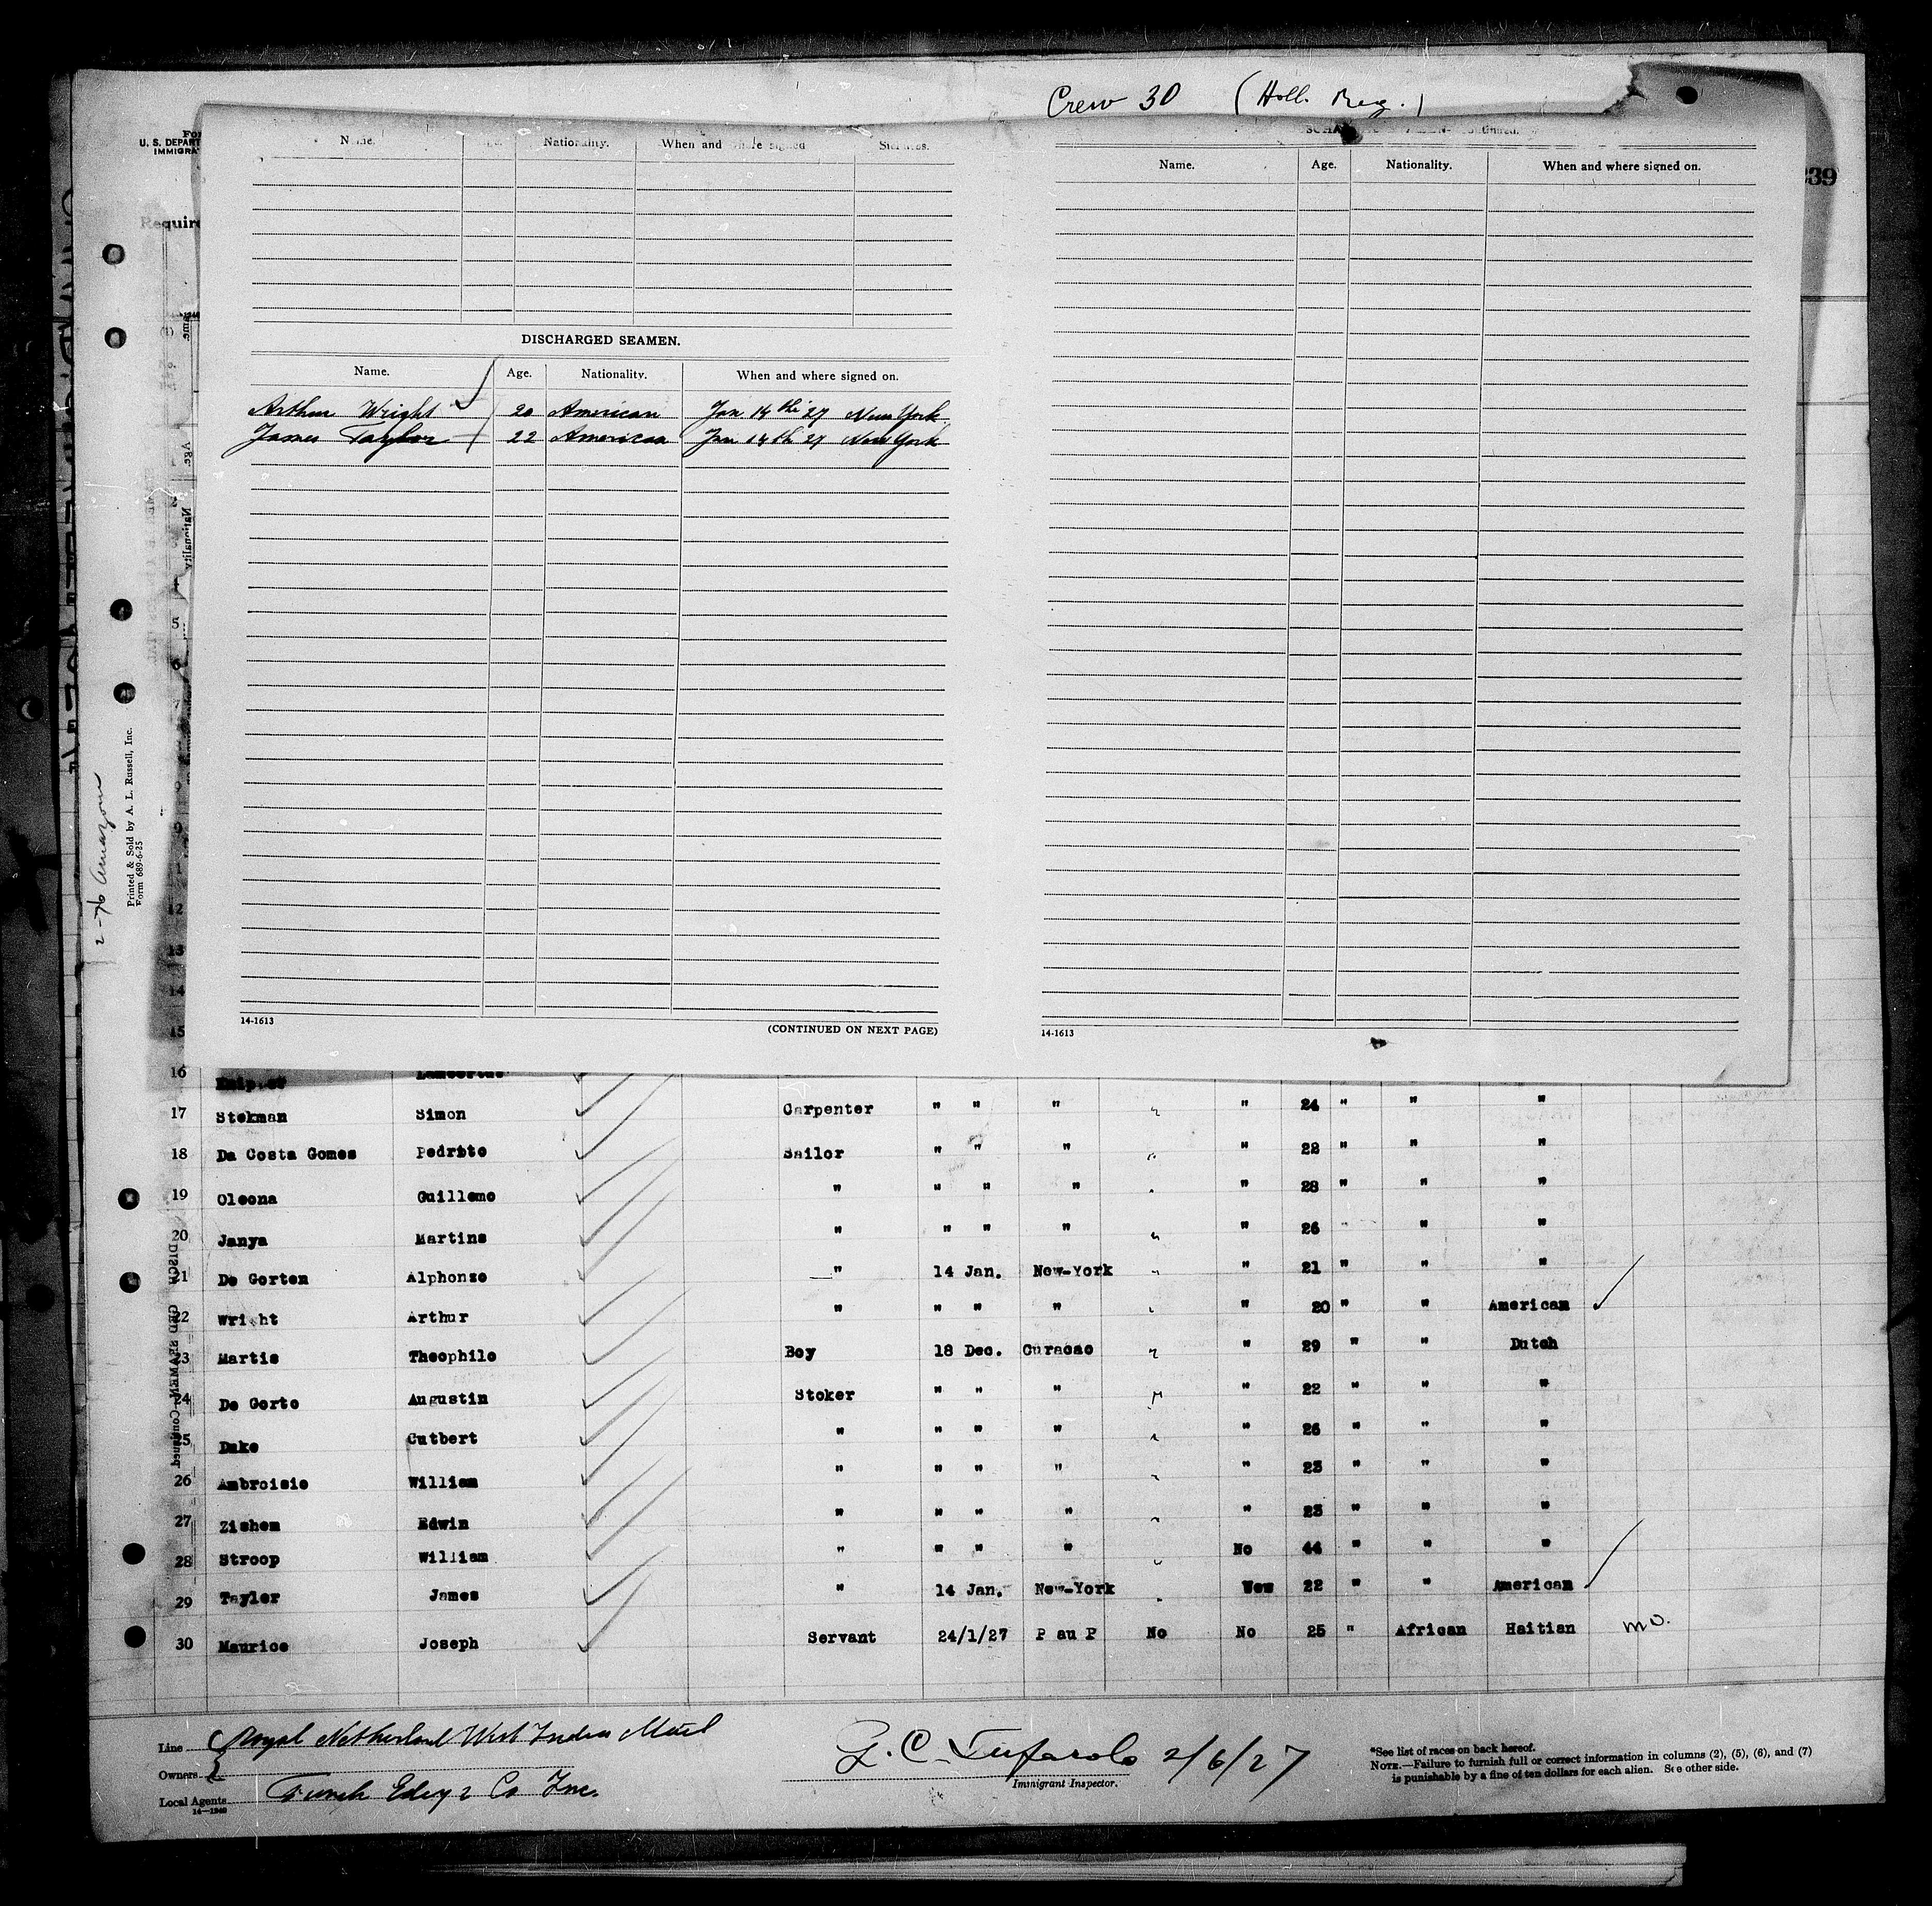 Crew 30 (Holl. Reg.)
U. S. DEPART
IMMIGRA
Require
39
Name. Age. Nationality. When and where signed
DISCHARGED SEAMEN.
Name. Age. Nationality. When and where signed on.
Arthur Wright 20 American Jan 14th 27 New York
James Taylor 22 American Jan 14th 27 New York
14-1613 (CONTINUED ON NEXT PAGE)
Name. Age. Nationality. When and where signed on.
14-1613
Printed & Sold by A. L. Russell, Inc.
Form 689-6-25
2-76 Amazone
5
6
7
12
13
14
15
16
17 Stekman Simon Carpenter " " " " 24 " " "
18 Da Costa Gomes Pedrito Sailor " " " " 22 " " "
19 Oleona Guillemo " " " " " 28 " " "
20 Janya Martins " " " " " 26 " " "
21 De Gorten Alphonse " 14 Jan. New-York " " 21 " " "
22 Wright Arthur " " " " " 20 " " American
23 Martis Theophilo Boy 18 Dec. Curacao " 29 " " Dutch
24 De Gorto Augustin Stoker " " " " 22 " " "
25 Dake Cutbert " " " " " 26 " " "
26 Ambroisie William " " " " " 23 " " "
27 Zishem Edwin " " " " " 23 " " "
28 Stroop William " " " " No 44 " " "
29 Tayler James " 14 Jan. New-York 22 " " American
30 Maurice Joseph Servant 24/1/27 P au P No No 25 " African Haitian mo.
Line Royal Netherland West Indies Mail
Owners
Local Agents Funch Edye & Co Inc.
14-1240
2/6/27
Immigrant Inspector.
*See list of races on back hereof.
NOTE.—Failure to furnish full or correct information in columns (2), (5), (6), and (7)
is punishable by a fine of ten dollars for each alien. See other side.